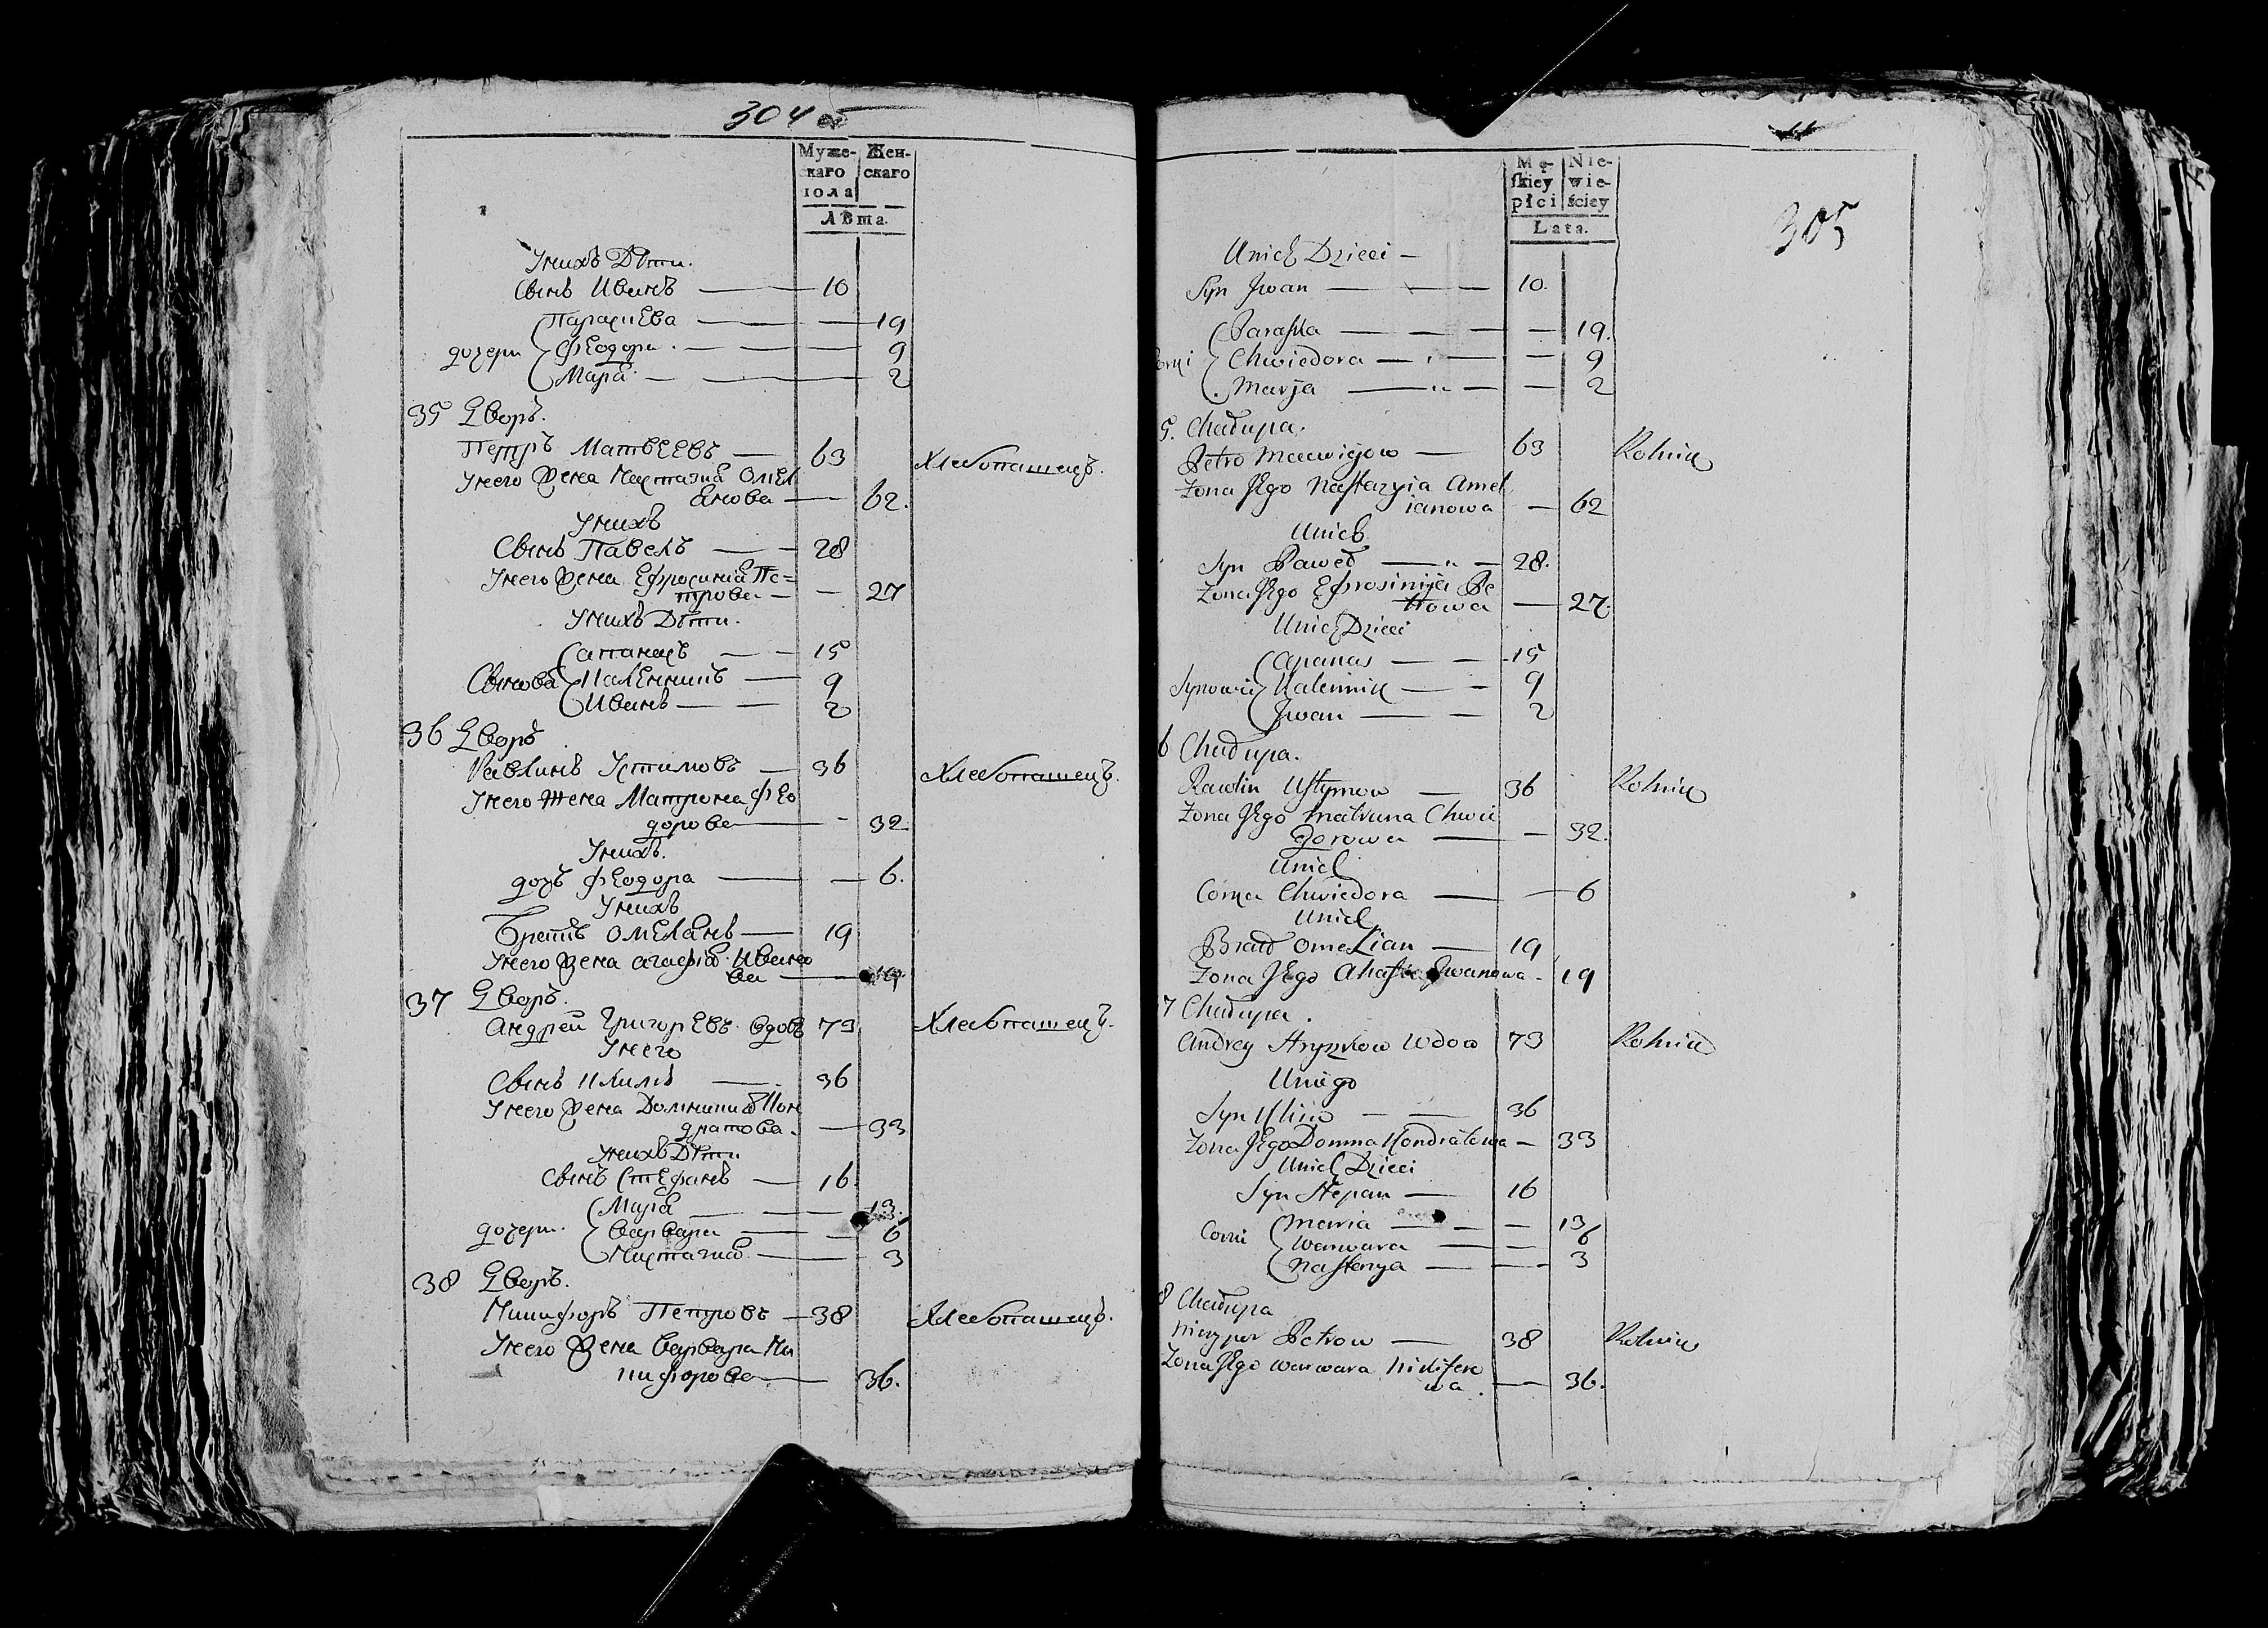 304 об
Муже- Жен-
скаго скаго
пола
Лѣта.
У нихъ Дѣти.
Сынъ Иванъ — 10
Параскева — 19
дочери Феодора — 9
Марія — 2
35 Дворъ.
Петръ Матвеевъ — 63 Хлебопашецъ.
У него жена Настазия Омел
янова — 62.
У нихъ
Сынъ Павелъ — 28
У него жена Ефросиния Пе=
трова — 27
У нихъ Дѣти.
Апанасъ — 15
Сынова Каленникъ — 9
Иванъ — 2
36 Дворъ
Равлинъ Устимовъ — 36 Хлебопашецъ.
У него жена Матрона Фео
дорова — 32
У нихъ.
дочь Феодора — 6.
У нихъ
Братъ Омелянъ — 19
У него жена Агафія Ивано
ва — 19
37 Дворъ.
Андрей Григоревъ вдовъ 73 Хлебопашецъ.
У него
Сынъ Климъ — 36
У него жена Домникия Кон
дратова — 33
У нихъ Дѣти
Сынъ Стефанъ — 16.
Марія — 13.
дочери Варвара — 6
Настазия — 3
38 Дворъ.
Никифоръ Петровъ — 38 Хлебопашецъ.
У него жена Варвара Ни
кифорова — 36.
11
305
Mę- Nie-
skiey wie-
płci ściey
Lata.
Unich Dzieci —
Syn Jwan — 10.
Paraska — 19.
Corki Chwiedora — 9
Marja — 2
5. Chałupa.
Petro Macwiejow — 63 Rolnik
Zona Jego Nastazyia Amel
ianowa — 62
Unich
Syn Paweł — 28.
Zona Jego Efrosinija Pe
trowa — 27.
Unich Dzieci
Apanas — 15
Synowie Kalennik — 9
Jwan — 2
6 Chałupa.
Rawlin Ustymow — 36 Rolnik
Zona Jego Matruna Chwie
dorowa — 32.
Unich
Córka Chwiedora — 6
Unich
Brat Omelian — 19
Zona Jego Ahafia Jwanowa — 19
7 Chałupa.
Andrey Hryzkow Wdow 73 Rolnik
Uniego
Syn Klim — 36
Zona Jego Domna Kondratowa — 33
Unich Dzieci
Syn Stepan — 16
Maria — 13
Corki Warwara — 6
Nastazya — 3
8 Chałupa
Niczypor Petrow — 38 Rolnik
Zona Jego Warwara Nikifero
wa — 36.